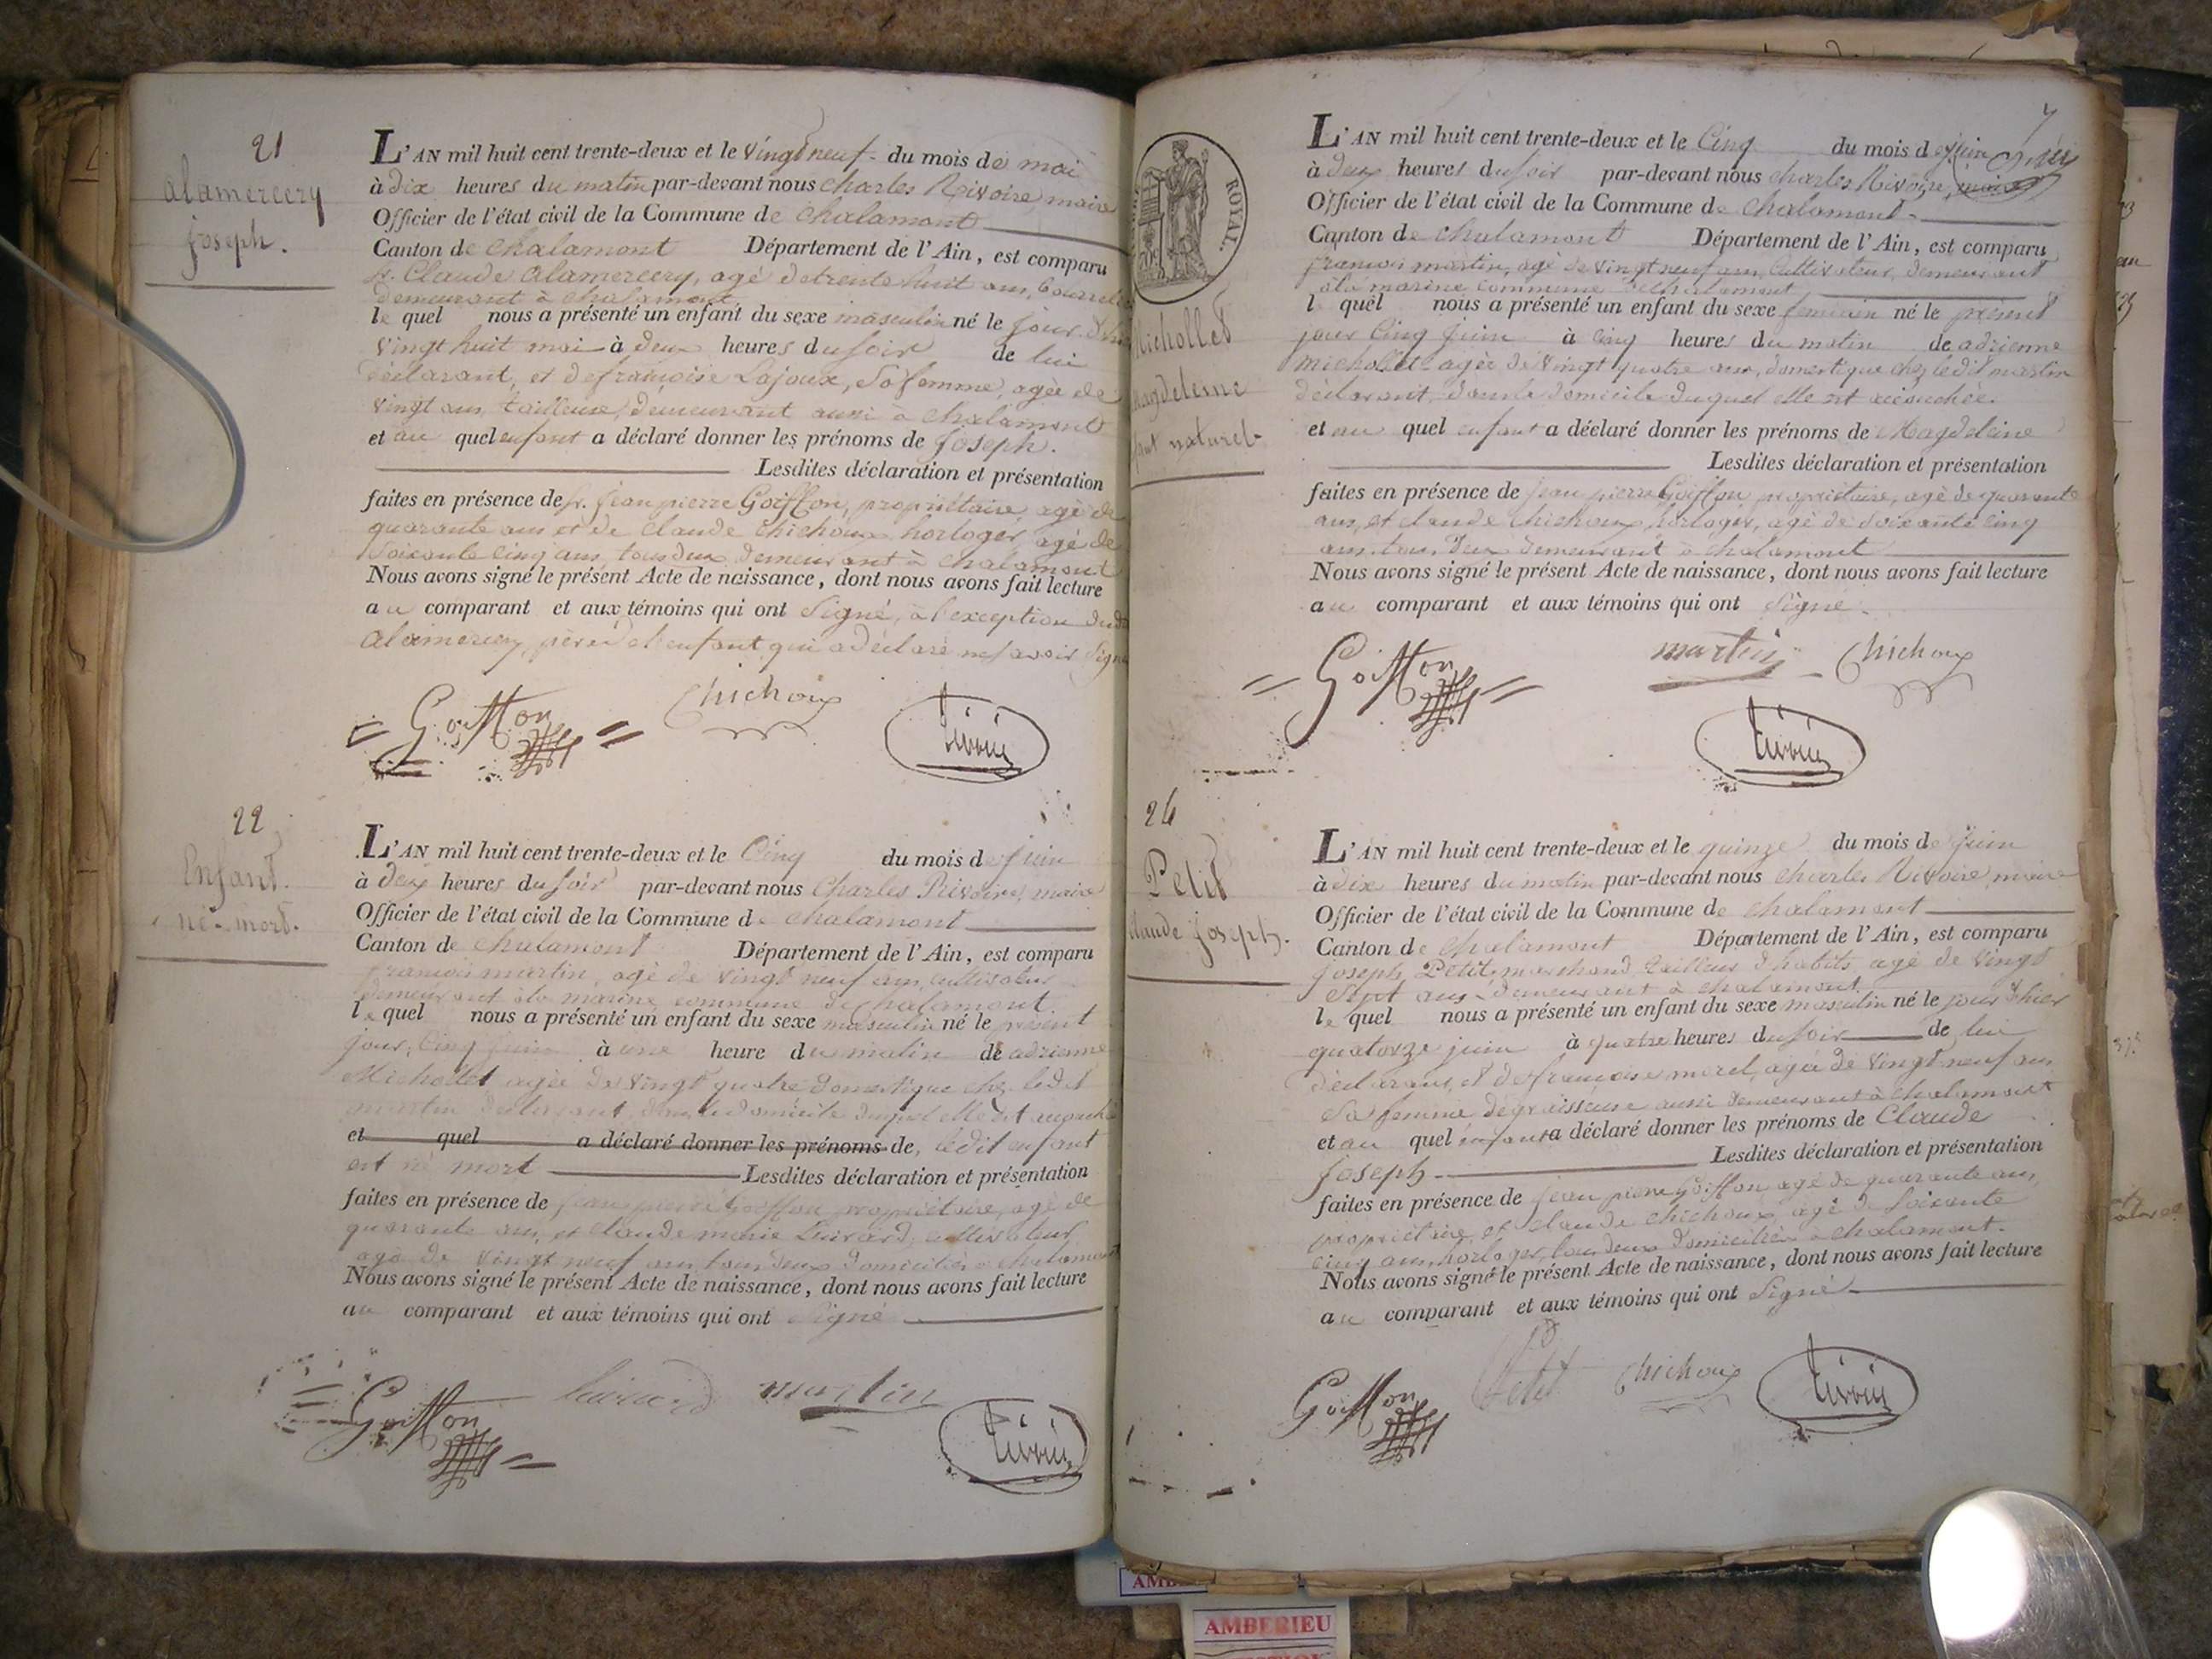 21
alamercery
joseph.
L'AN mil huit cent trente-deux et le vingt neuf du mois de mai
à dix heures du matin par-devant nous charles Rivoire, maire
Officier de l'état civil de la Commune de chalamont
Canton de chalamont Département de l'Ain, est comparu
sr. Claude alamercery, agé de trente huit ans,
demeurant à chalamont
le quel nous a présenté un enfant du sexe masculin né le jour d'hier
vingt huit mai à deux heures du soir de lui
déclarant, et de françoise Lajoux, sa femme, agée de
vingt ans, tailleuse, demeurant aussi à chalamont
et au quel enfant a déclaré donner les prénoms de joseph.
Lesdites déclaration et présentation
faites en présence de sr. jean pierre Goiffon, propriétaire agé de
quarante ans et de claude chichoux horloger, agé de
soixante cinq ans, tous deux demeurant à chalamont
Nous avons signé le présent Acte de naissance, dont nous avons fait lecture
au comparant et aux témoins qui ont signé, à l'exception dudit
alamercery, père de l'enfant qui a déclaré ne savoir signer
Goiffon chichoux Rivoire
22
Enfant
né-mort.
L'AN mil huit cent trente-deux et le cinq du mois de juin
à deux heures du soir par-devant nous Charles Rivoire, maire
Officier de l'état civil de la Commune de chalamont
Canton de chalamont Département de l'Ain, est comparu
françois martin, agé de vingt neuf ans, cultivateur
demeurant à la marine commune de chalamont
le quel nous a présenté un enfant du sexe masculin né le présent
jour, cinq juin à une heure du matin de adrienne
Michollet agée de vingt quatre domestique chez ledit
martin déclarant, dans le domicile duquel elle est accouchée
et quel a déclaré donner les prénoms de, ledit enfant
est né mort Lesdites déclaration et présentation
faites en présence de jean pierre Goiffon propriétaire, agé de
quarante ans, et claude marie cultivateur,
agé de vingt neuf ans, tous deux domiciliés à chalamont
Nous avons signé le présent Acte de naissance, dont nous avons fait lecture
au comparant et aux témoins qui ont signé
Goiffon martin Rivoire
7
ROYAL.
Michollet
magdeleine
fant naturel
L'AN mil huit cent trente-deux et le cinq du mois de juin
à deux heures du soir par-devant nous charles Rivoire, maire
Officier de l'état civil de la Commune de chalamont
Canton de chalamont Département de l'Ain, est comparu
françois martin, agé de vingt neuf ans, cultivateur, demeurant
à la marine commune de chalamont
le quel nous a présenté un enfant du sexe feminin né le présent
jour cinq juin à cinq heures du matin de adrienne
michollet agée de vingt quatre ans, domestique chez ledit martin
déclarant, dans le domicile duquel elle est accouchée.
et au quel enfant a déclaré donner les prénoms de Magdeleine
Lesdites déclaration et présentation
faites en présence de jean pierre Goiffon propriétaire, agé de quarante
ans, et claude chichoux horloger, agé de soixante cinq
ans tous deux demeurant à chalamont
Nous avons signé le présent Acte de naissance, dont nous avons fait lecture
au comparant et aux témoins qui ont signé.
Goiffon martin Chichoux
Rivoire
24
Petit
claude joseph.
L'AN mil huit cent trente-deux et le quinze du mois de juin
à dix heures du matin par-devant nous charles Rivoire, maire
Officier de l'état civil de la Commune de chalamont
Canton de chalamont Département de l'Ain, est comparu
joseph Petit marchand tailleur d'habits agé de vingt
sept ans demeurant à chalamont
le quel nous a présenté un enfant du sexe masculin né le jour d'hier
quatorze juin à quatre heures du soir de lui
déclarant, et de françoise morel, agée de vingt neuf ans
sa femme dégraisseuse aussi demeurant à chalamont
et au quel enfant a déclaré donner les prénoms de Claude
joseph Lesdites déclaration et présentation
faites en présence de jean pierre Goiffon agé de quarante ans,
propriétaire, et claude chichoux agé de soixante
cinq ans, horloger, tous deux domiciliés à chalamont.
Nous avons signé le présent Acte de naissance, dont nous avons fait lecture
au comparant et aux témoins qui ont signé
Goiffon Petit chichoux Rivoire
AMBERIEU